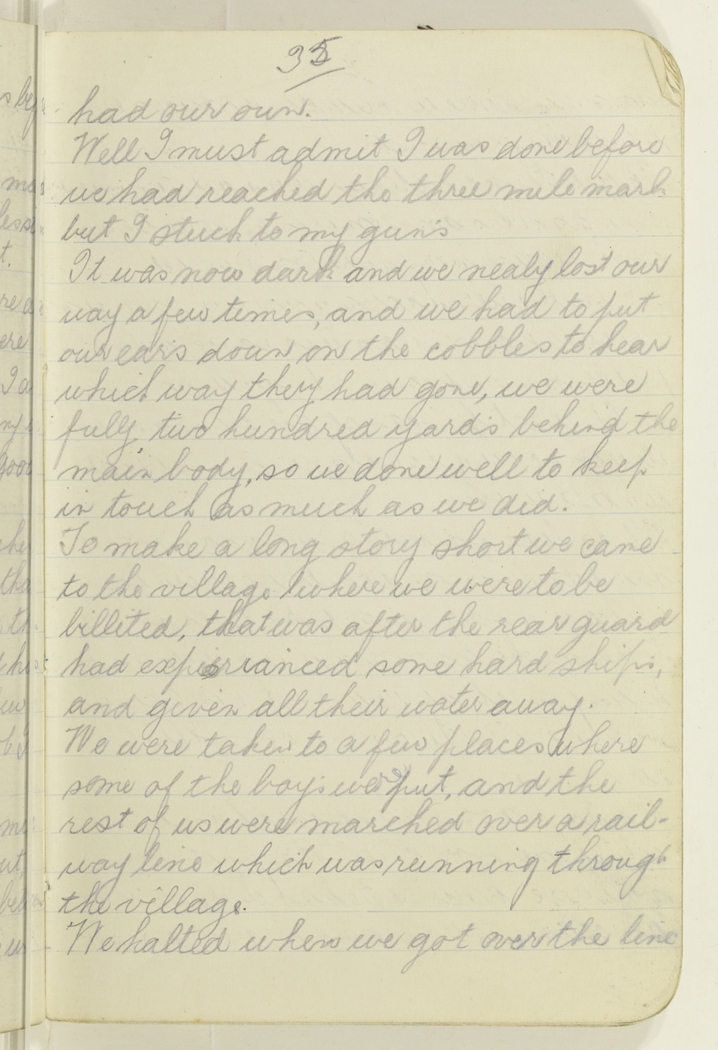 35
had our own.
Well I must admit I was done before
we had reached the three mile mark
but I stuck to my gun's
It was now dark and we nealy lost our
way a few times, and we had to put
our ears down on the cobbles to hear
which way they had gone, we were
fully two hundred yards behind the
main body, so we done well to keep
in touch as much as we did.
To make a long story short we came
to the village where we were to be
billited, that was after the rear guard
had experianced some hard ships,
and given all their water away.
We were taken to a few places where
some of the boys were put, and the
rest of us were marched over a rail-
way line which was running through
the village.
We halted when we got over the line